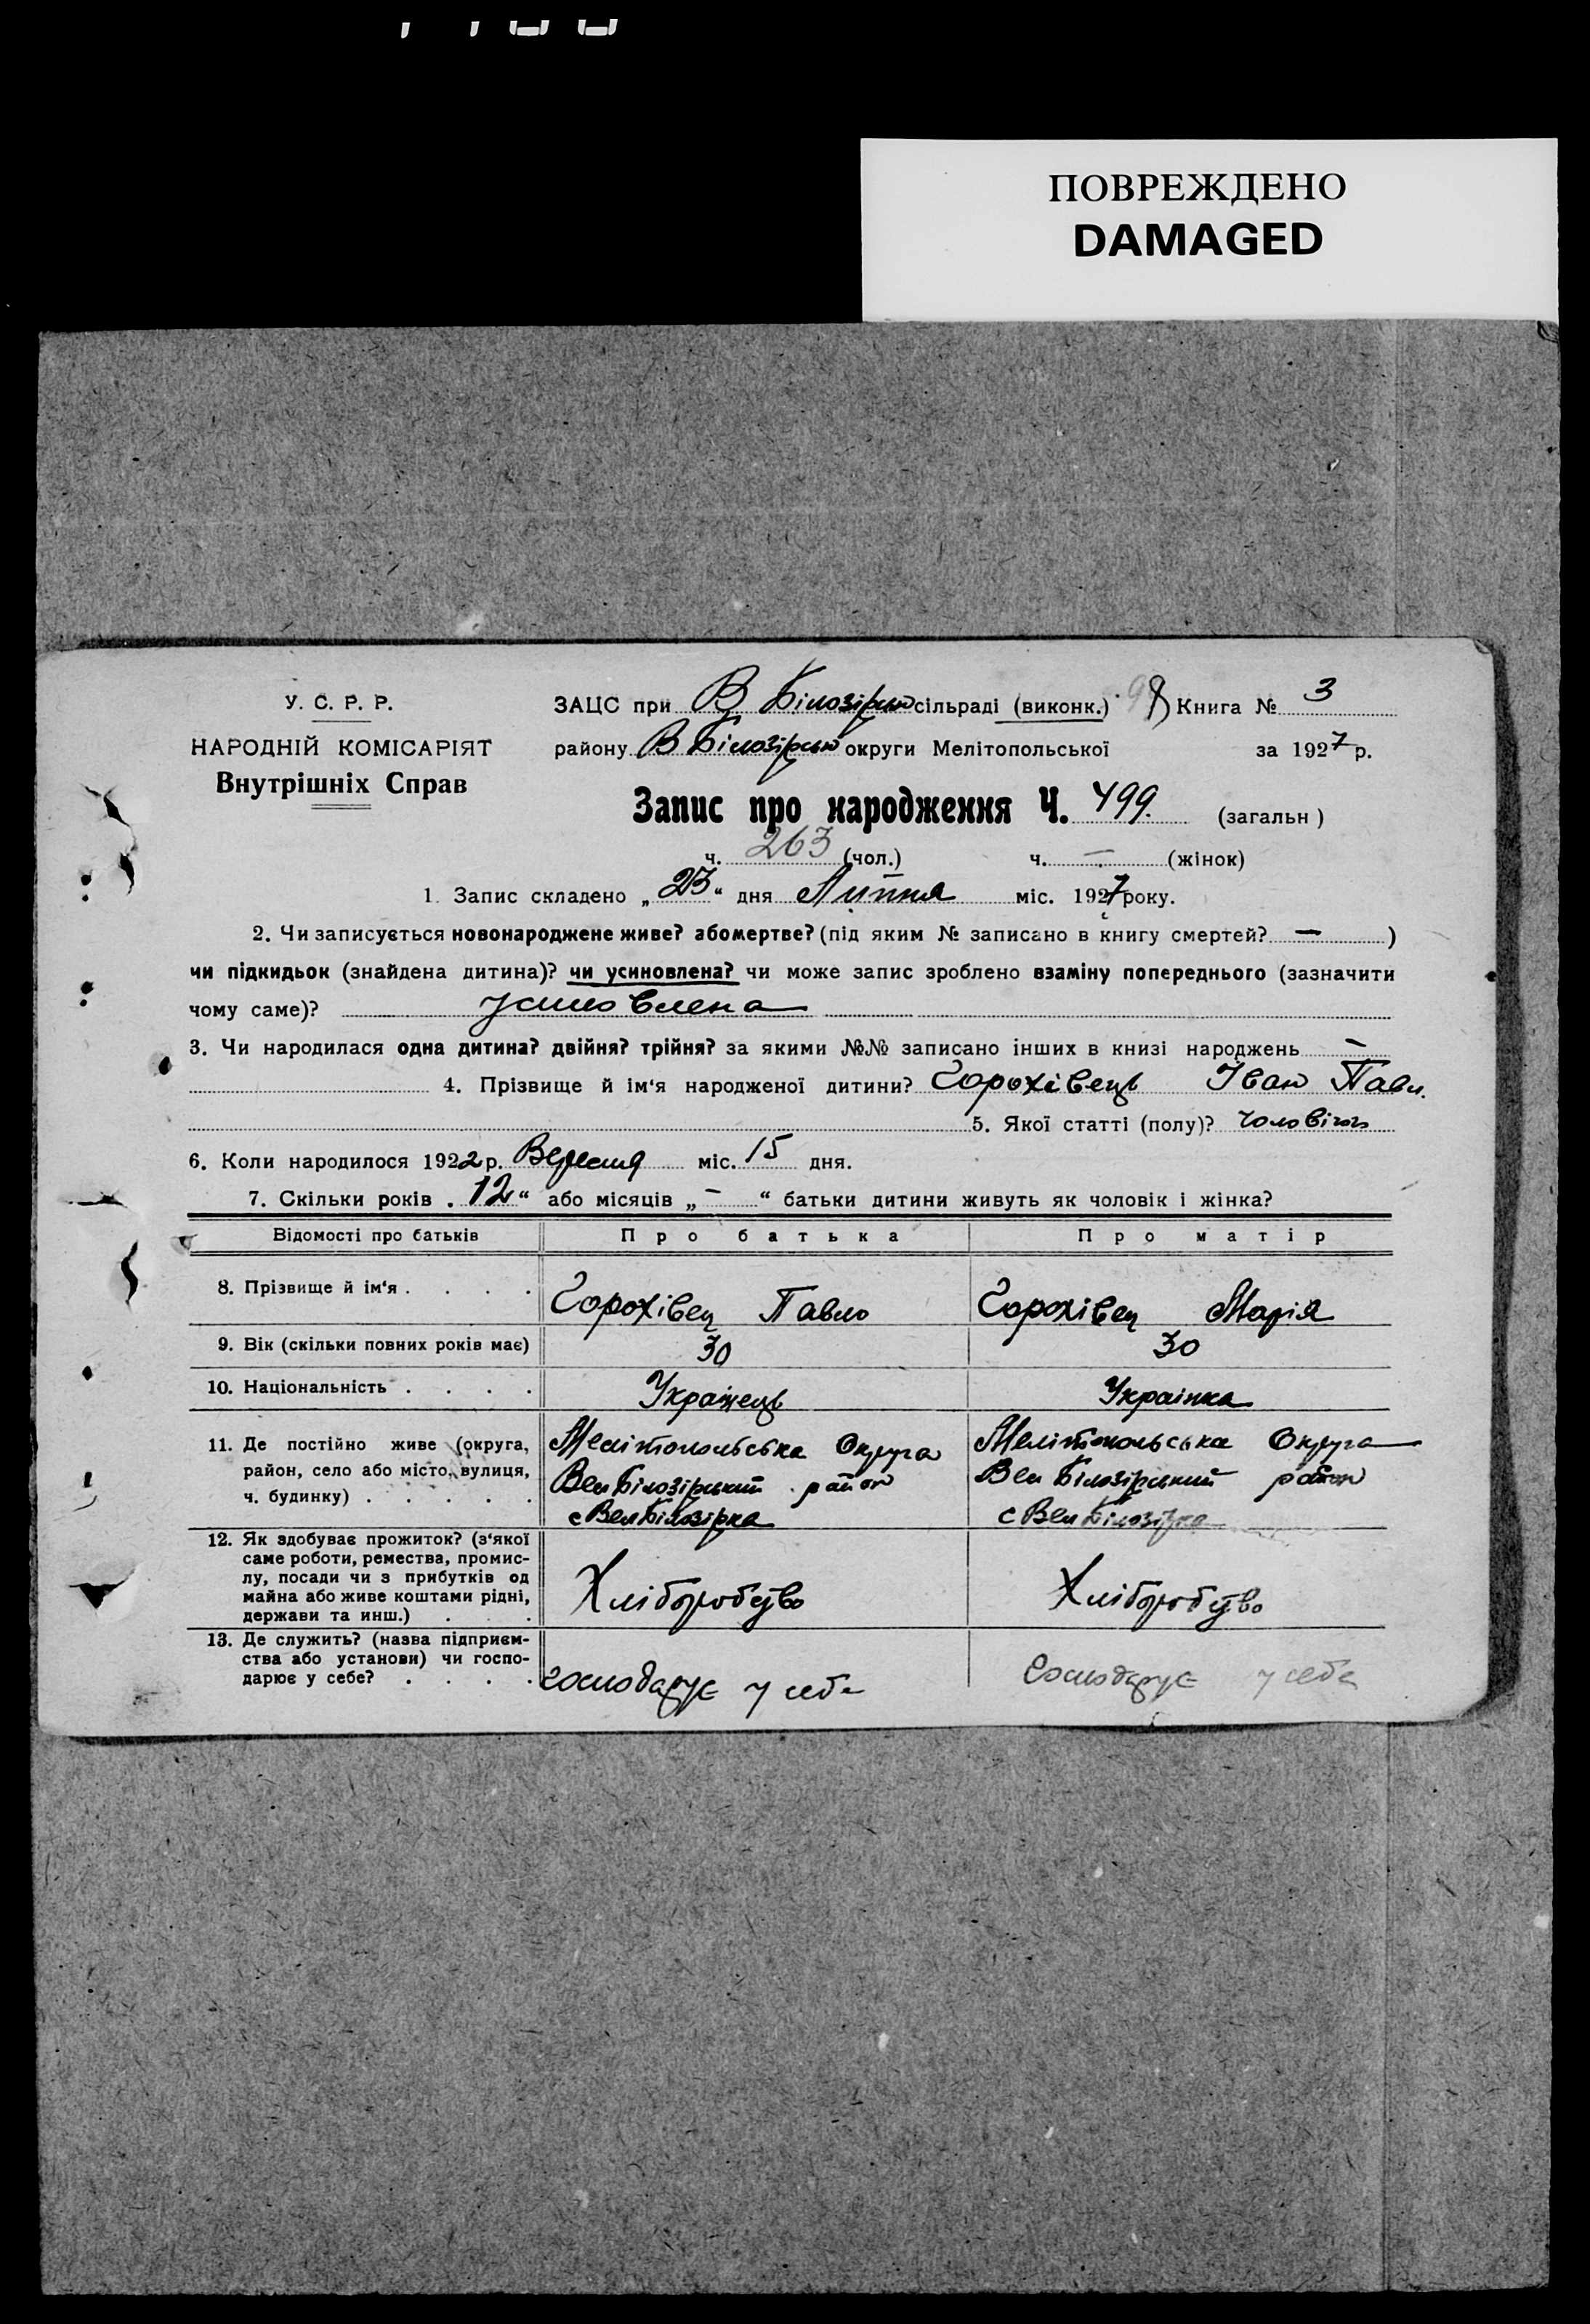 ПОВРЕЖДЕНО
DAMAGED
У. С. Р. Р.
НАРОДНІЙ КОМІСАРІЯТ
Внутрішніх Справ
ЗАЦС при В Білозірськ сільраді (виконк.) Книга № 3
району В Білозірськ округи Мелітопольської за 1927 р.
Запис про народження Ч. 499. (загальн)
ч. 263 (чол.) ч. — (жінок)
1. Запис складено „23“ дня Липня міс. 1927 року.
2. Чи записується новонароджене живе? або мертве? (під яким № записано в книгу смертей? — )
чи підкидьок (знайдена дитина)? чи усиновлена? чи може запис зроблено взаміну попереднього (зазначити
чому саме)? усиновлена
3. Чи народилася одна дитина? двійня? трійня? за якими №№ записано інших в книзі народжень —
4. Прізвище й ім‘я народженої дитини? Горохівець Іван Павл.
5. Якої статті (полу)? чоловічої
6. Коли народилося 1922 р. Вересня міс. 15 дня.
7. Скільки років „12“ або місяців „—“ батьки дитини живуть як чоловік і жінка?
Відомості про батьків Про батька Про матір
8. Прізвище й ім‘я . . . . Горохівец Павло Горохівец Марія
9. Вік (скільки повних років має) 30 30
10. Національність . . . . Українець Українка
11. Де постійно живе (округа, район, село або місто, вулиця, ч. будинку) . . . . .
Мелітопольська Округа Мелітопольська Округа
Вел Білозірський район Вел Білозірський район
с Вел Білозірка с Вел Білозірка
12. Як здобуває прожиток? (з‘якої
саме роботи, ремества, промис-
лу, посади чи з прибутків од
майна або живе коштами рідні,
держави та инш.) . . .
Хліборобство Хліборобство
13. Де служить? (назва підприєм-
ства або установи) чи госпо-
дарює у себе? . . . .
господарує у себе господарує у себе